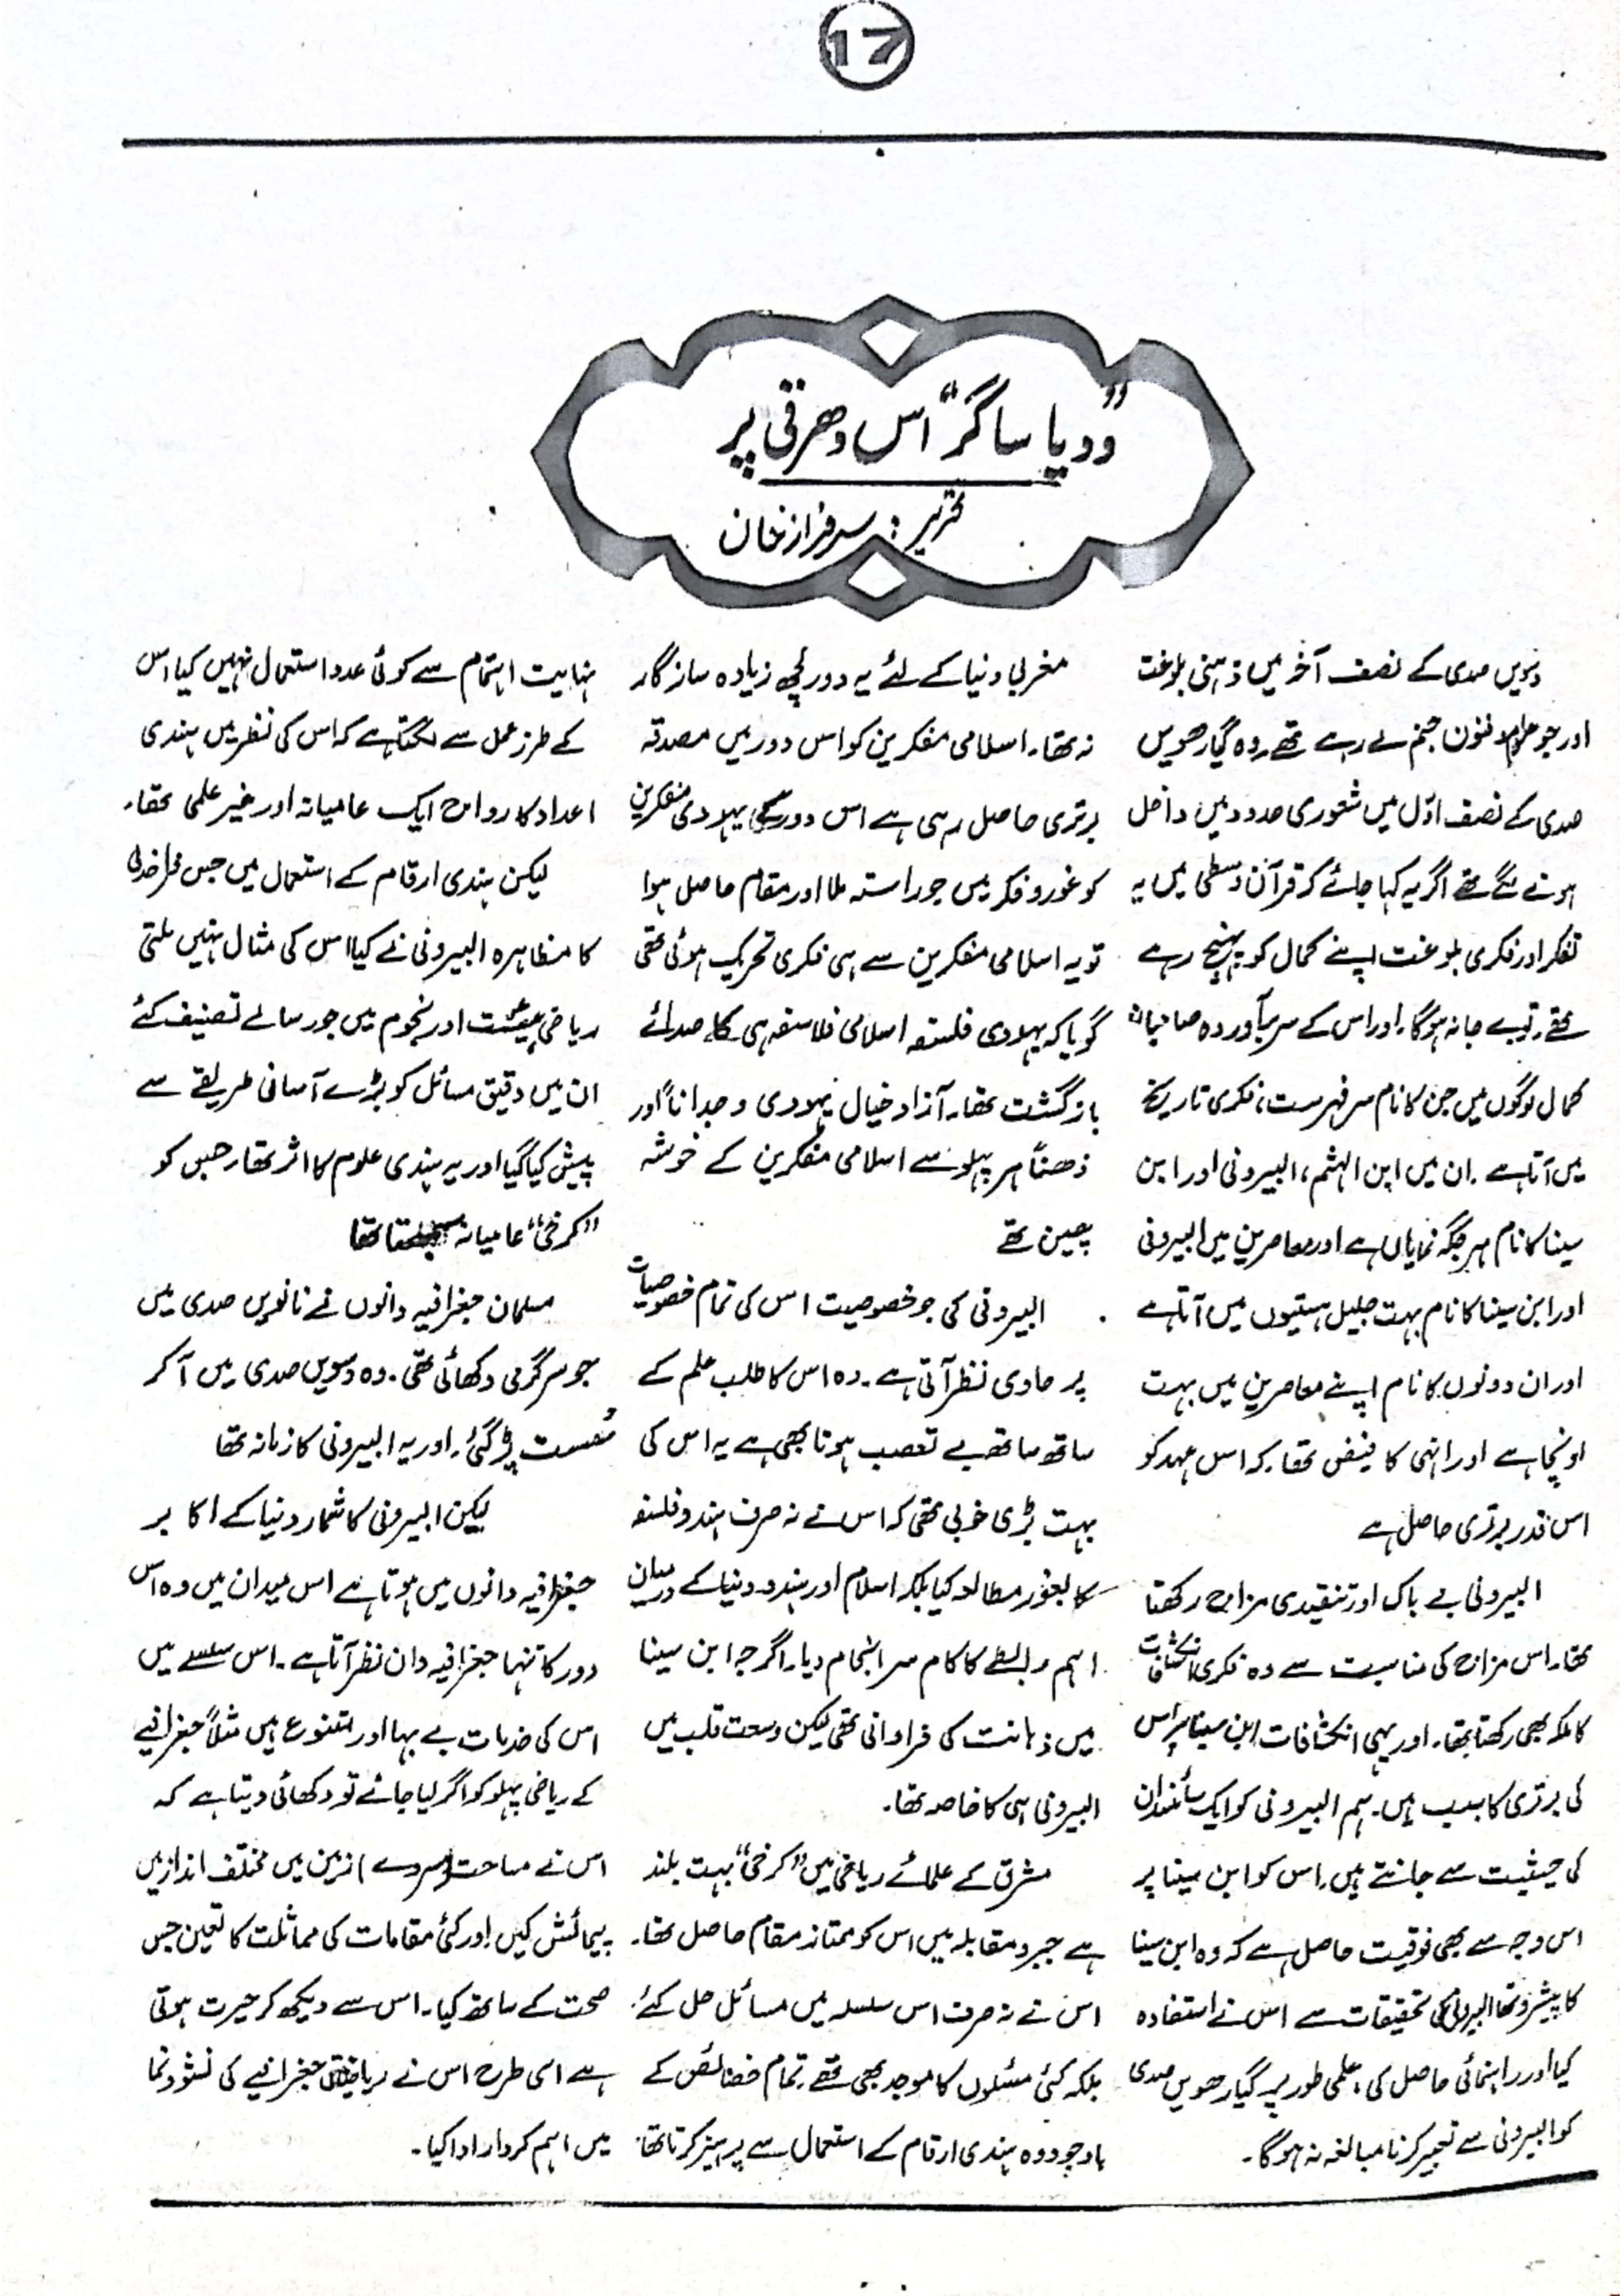 17
”ودیا ساگر“ اس دھرتی پر
تحریر : سرفراز خان
دسویں صدی کے نصف آخر میں ذہنی بلوغت
اور جو علوم و فنون جنم لے رہے تھے۔ وہ گیارھویں
صدی کے نصف اوّل میں شعوری حدود میں داخل
ہونے لگے تھے اگر یہ کہا جائے کہ قرآن وسطیٰ میں یہ
تفکر اور فکری بلوغت اپنے کمال کو پہنچ رہے
تھے۔ تو بے جا نہ ہوگا۔ اور اس کے سر برآوردہ صاحبان
کمال لوگوں میں جن کا نام سر فہرست، فکری تاریخ
میں آتا ہے۔ ان میں ابن الہثم، البیرونی اور ابن
سینا کا نام ہر جگہ نمایاں ہے اور معاصرین میں البیرونی
اور ابن سینا کا نام بہت جلیل ہستیوں میں آتا ہے
اور ان دونوں کا نام اپنے معاصرین میں بہت
اونچا ہے اور انہی کا فیض تھا۔ کہ اس عہد کو
اس قدر برتری حاصل ہے
البیرونی بے باک اور تنقیدی مزاج رکھتا
تھا۔ اس مزاج کی مناسبت سے وہ فکری انکشافات
کا ملکہ بھی رکھتا تھا۔ اور یہی انکشافات ابن سینا پر اس
کی برتری کا سبب ہیں۔ ہم البیرونی کو ایک سائنسدان
کی حیثیت سے جانتے ہیں۔ اس کو ابن سینا پر
اس وجہ سے بھی فوقیت حاصل ہے کہ وہ ابن سینا
کا پیشرو تھا البیرونی کی تحقیقات سے اس نے استفادہ
کیا اور راہنمائی حاصل کی، علمی طور پر گیارھویں صدی
کو البیرونی سے تعبیر کرنا مبالغہ نہ ہوگا۔
مغربی دنیا کے لئے یہ دور کچھ زیادہ سازگار
نہ تھا۔ اسلامی مفکرین کو اس دور میں مصدقہ
برتری حاصل رہی ہے اس دور کے یہودی مفکرین
کو غور و فکر میں جو راستہ ملا اور مقام حاصل ہوا
تو یہ اسلامی مفکرین سے ہی فکری تحریک ہوئی تھی
گویا کہ یہودی فلسفہ اسلامی فلاسفہ ہی کا صدائے
بازگشت تھا۔ آزاد خیال یہودی وجداناً اور
ذھناً ہر پہلو سے اسلامی مفکرین کے خوشہ
چین تھے
البیرونی کی جو خصوصیت اس کی تمام خصوصیات
پر حاوی نظر آتی ہے۔ وہ اس کا طلب علم کے
ساتھ ساتھ بے تعصب ہونا بھی ہے یہ اس کی
بہت بڑی خوبی تھی کہ اس نے نہ صرف ہندو فلسفہ
کا بغور مطالعہ کیا بلکہ اسلام اور ہندو دنیا کے درمیان
اہم رابطے کا کام سر انجام دیا۔ اگرچہ ابن سینا
میں ذہانت کی فراوانی تھی لیکن وسعت قلب میں
البیرونی ہی کا خاصہ تھا۔
مشرق کے علمائے ریاضی میں ”کرخی“ بہت بلند
ہے جبر و مقابلہ میں اس کو ممتاز مقام حاصل تھا۔
اس نے نہ صرف اس سلسلہ میں مسائل حل کئے
بلکہ کئی مسئلوں کا موجد بھی تھے تمام خصائص کے
باوجود وہ ہندی ارقام کے استعمال سے پرہیز کرتا تھا۔
نہایت اہتمام سے کوئی عدد استعمال نہیں کیا اس
کے طرز عمل سے لگتا ہے کہ اس کی نظر میں ہندی
اعداد کا رواج ایک عامیانہ اور غیر علمی تھا۔
لیکن ہندی ارقام کے استعمال میں جس فراخدلی
کا مظاہرہ البیرونی نے کیا اس کی مثال نہیں ملتی
ریاضی ہیئت اور نجوم میں جو رسالے تصنیف کئے
ان میں دقیق مسائل کو بڑے آسانی طریقے سے
پیش کیا گیا اور یہ ہندی علوم کا اثر تھا۔ جس کو
”کرخی“ عامیانہ سمجھتا تھا
مسلمان جغرافیہ دانوں نے نانویں صدی میں
جو سرگرمی دکھائی تھی۔ وہ دسویں صدی میں آ کر
سُست پڑ گئی۔ اور یہ البیرونی کا زمانہ تھا
لیکن البیرونی کا شمار دنیا کے اکابر
جغرافیہ دانوں میں ہوتا ہے اس میدان میں وہ اس
دور کا تنہا جغرافیہ دان نظر آتا ہے۔ اس سلسلے میں
اس کی خدمات بے بہا اور متنوع ہیں مثلاً جغرافیے
کے ریاضی پہلو کو اگر لیا جائے تو دکھائی دیتا ہے کہ
اس نے مساحت (سروے) زمین میں مختلف انداز میں
پیمائش کیں اور کئی مقامات کی مماثلت کا تعین جس
صحت کے ساتھ کیا۔ اس سے دیکھ کر حیرت ہوتی
ہے اسی طرح اس نے ریاضیاتی جغرافیے کی نشوونما
میں اہم کردار ادا کیا۔